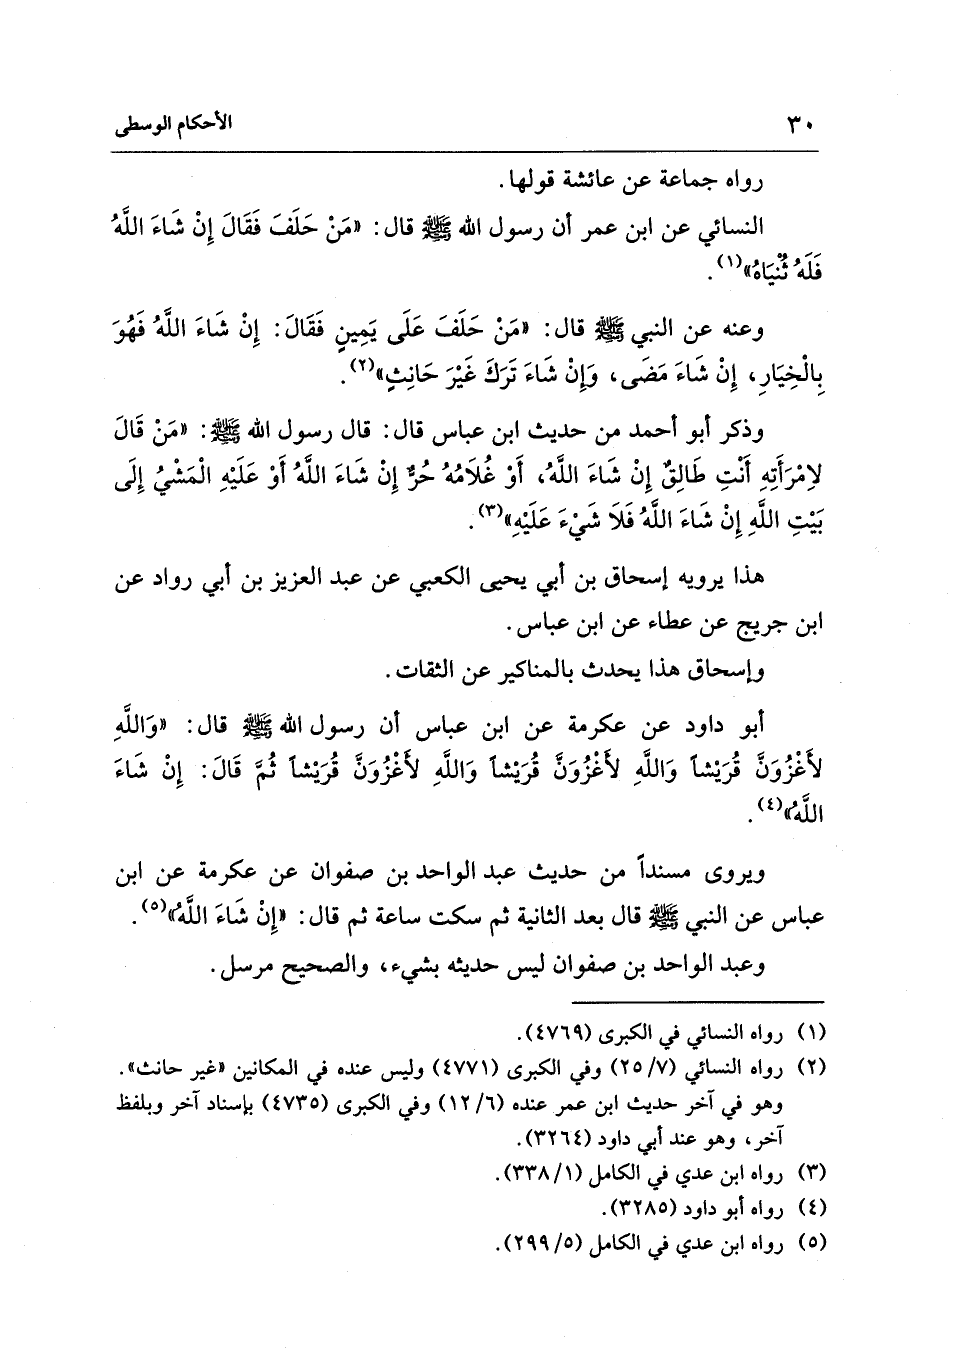 ٣٠ الأحكام الوسطى
رواه جماعة عن عائشة قولها.
النسائي عن ابن عمر أن رسول الله ﷺ قال: «مَنْ حَلَفَ فَقَالَ إِنْ شَاءَ اللَّهُ
فَلَهُ ثُنْيَاهُ»(١).
وعنه عن النبي ﷺ قال: «مَنْ حَلَفَ عَلَى يَمِينٍ فَقَالَ: إِنْ شَاءَ اللَّهُ فَهُوَ
بِالْخِيَارِ، إِنْ شَاءَ مَضَى، وَإِنْ شَاءَ تَرَكَ غَيْرَ حَانِثٍ»(٢).
وذكر أبو أحمد من حديث ابن عباس قال: قال رسول الله ﷺ: «مَنْ قَالَ
لاِمْرَأَتِهِ أَنْتِ طَالِقٌ إِنْ شَاءَ اللَّهُ، أَوْ غُلَامُهُ حُرٌّ إِنْ شَاءَ اللَّهُ أَوْ عَلَيْهِ الْمَشْيُ إِلَى
بَيْتِ اللَّهِ إِنْ شَاءَ اللَّهُ فَلَا شَيْءَ عَلَيْهِ»(٣).
هذا يرويه إسحاق بن أبي يحيى الكعبي عن عبد العزيز بن أبي رواد عن
ابن جريج عن عطاء عن ابن عباس.
وإسحاق هذا يحدث بالمناكير عن الثقات.
أبو داود عن عكرمة عن ابن عباس أن رسول الله ﷺ قال: «وَاللَّهِ
لأَغْزُوَنَّ قُرَيْشاً وَاللَّهِ لأَغْزُوَنَّ قُرَيْشاً وَاللَّهِ لأَغْزُوَنَّ قُرَيْشاً ثُمَّ قَالَ: إِنْ شَاءَ
اللَّهُ»(٤).
ويروى مسنداً من حديث عبد الواحد بن صفوان عن عكرمة عن ابن
عباس عن النبي ﷺ قال بعد الثانية ثم سكت ساعة ثم قال: «إِنْ شَاءَ اللَّهُ»(٥).
وعبد الواحد بن صفوان ليس حديثه بشيء، والصحيح مرسل.
(١) رواه النسائي في الكبرى (٤٧٦٩).
(٢) رواه النسائي (٢٥/٧) وفي الكبرى (٤٧٧١) وليس عنده في المكانين «غير حانث».
وهو في آخر حديث ابن عمر عنده (١٢/٦) وفي الكبرى (٤٧٣٥) بإسناد آخر وبلفظ
آخر، وهو عند أبي داود (٣٢٦٤).
(٣) رواه ابن عدي في الكامل (٣٣٨/١).
(٤) رواه أبو داود (٣٢٨٥).
(٥) رواه ابن عدي في الكامل (٢٩٩/٥).